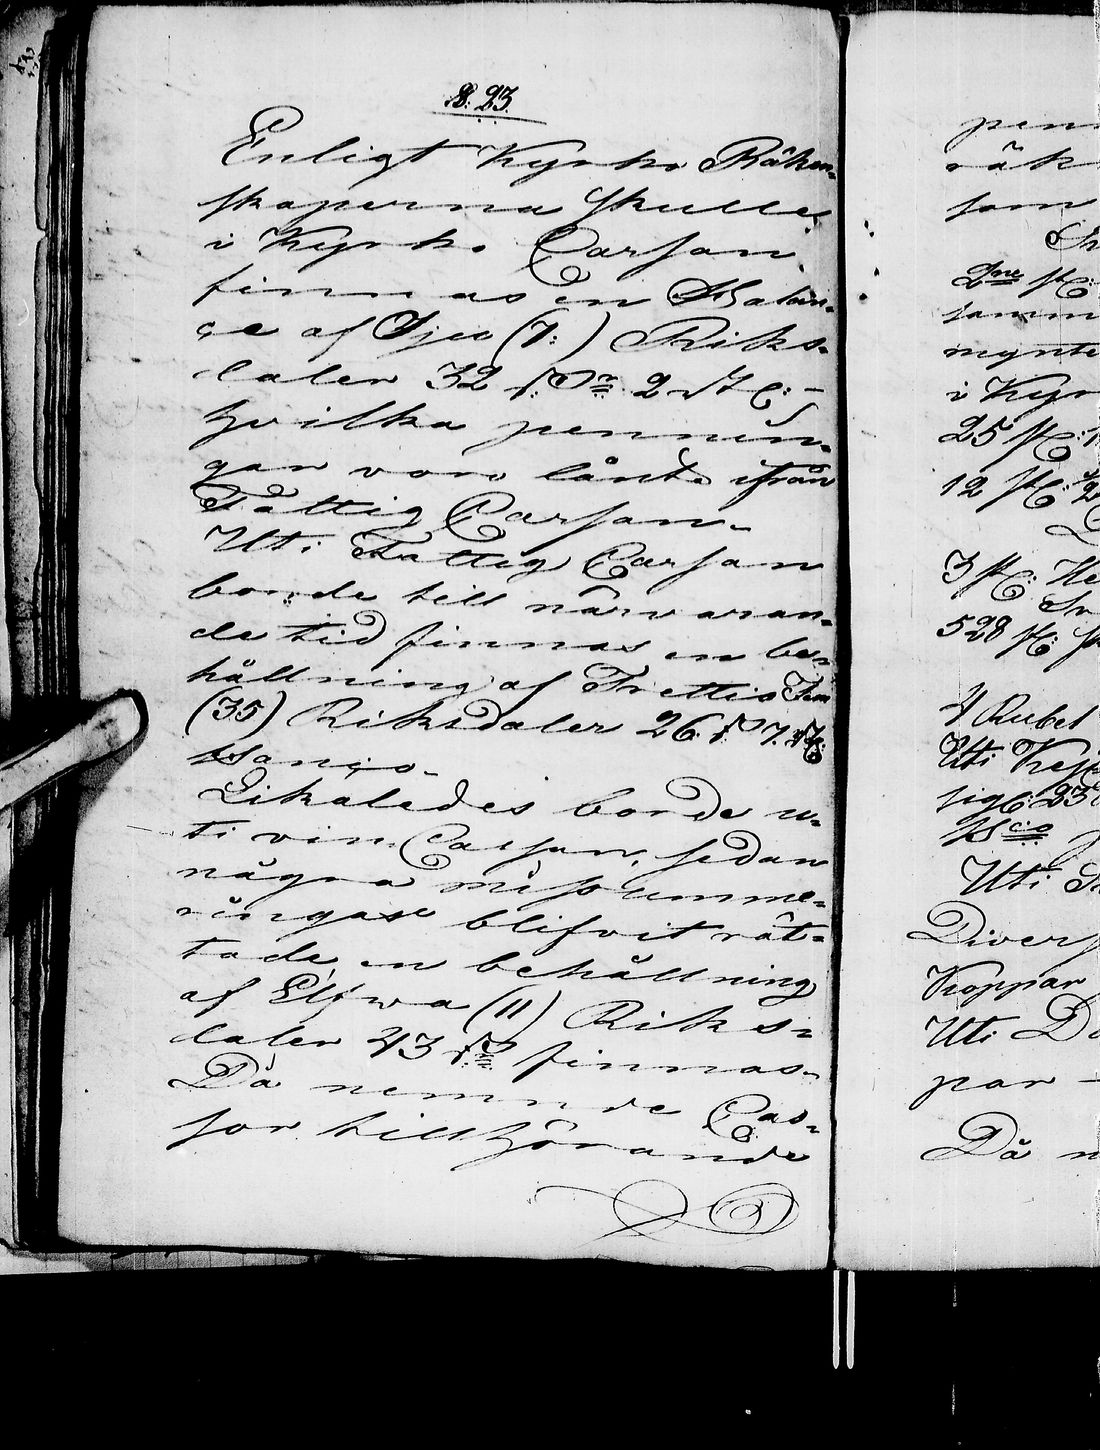 §. 23.
Enligt Kyrko Räken-
skaperna skulle
i Kyrko Cassan
finnas en Balan-
ce af Sju (7:) Riks-
daler 32 ſ:
hvilka pennin-
gar voro lånte ifrån
Fattig Cassan.
Uti Fattig Cassan
borde till närvaran-
de tid finnas en be-
hållning af Trettio Fem
(35) Riksdaler 26 ſ: 7.
Banco.
Likaledes borde u-
ti vin Cassan, sedan
några missumme-
ringar blifvit rät-
tade en behållning
af Elfwa (11) Riks-
daler 43 ſ: finnas.
Då nemnde Cas-
sor tillhörande
pen
räk
som
2ne st:
samm
mynte
i Kyr
25 st:
12 st:
3 st:
528 st:
4 Rubel
Uti
25
Bco
Uti
Divers
Koppar
Uti
par -
Då